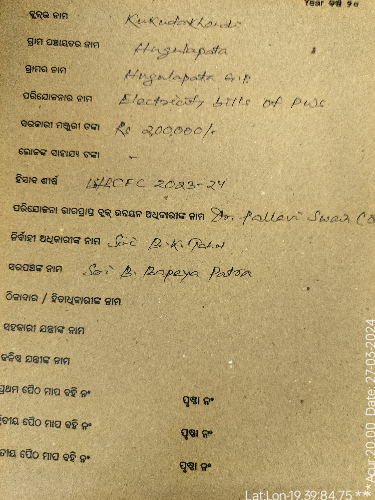 Year ବର୍ଷ
ବ୍ଲକ୍‌ର ନାମ Kukudakhandi
ଗ୍ରାମ ପଞ୍ଚାୟତର ନାମ Hugulapata
ଗ୍ରାମର ନାମ Hugulapata G.P
ପରିଯୋଜନାର ନାମ Electricity bills of PWS
ସରକାରୀ ମଞ୍ଜୁରୀ ଟଙ୍କା Rs 200,000/-
ଲୋକଙ୍କ ସାହାଯ୍ୟ ଟଙ୍କା -
ହିସାବ ଶୀର୍ଷ CFC 2023-24
ପରିଯୋଜନା ଭାରପ୍ରାପ୍ତ ବ୍ଲକ୍ ଉନ୍ନୟନ ଅଧିକାରୀଙ୍କ ନାମ Pallavi Swar
ନିର୍ବାହୀ ଅଧିକାରୀଙ୍କ ନାମ Sri B.K.
ସରପଞ୍ଚଙ୍କ ନାମ Sri B. Papaya Patra
ଠିକାଦାର / ହିତାଧିକାରୀଙ୍କ ନାମ
ସହକାରୀ ଯନ୍ତ୍ରୀଙ୍କ ନାମ
କନିଷ୍ଠ ଯନ୍ତ୍ରୀଙ୍କ ନାମ
ପ୍ରଥମ ପୈଠ ମାପ ବହି ନଂ ପୃଷ୍ଠା ନଂ
ଦ୍ୱିତୀୟ ପୈଠ ମାପ ବହି ନଂ ପୃଷ୍ଠା ନଂ
ତୃତୀୟ ପୈଠ ମାପ ବହି ନଂ ପୃଷ୍ଠା ନଂ
Lat:Lon-19.39:84.75 *** Acur:20.00, Date, 27-03-2024